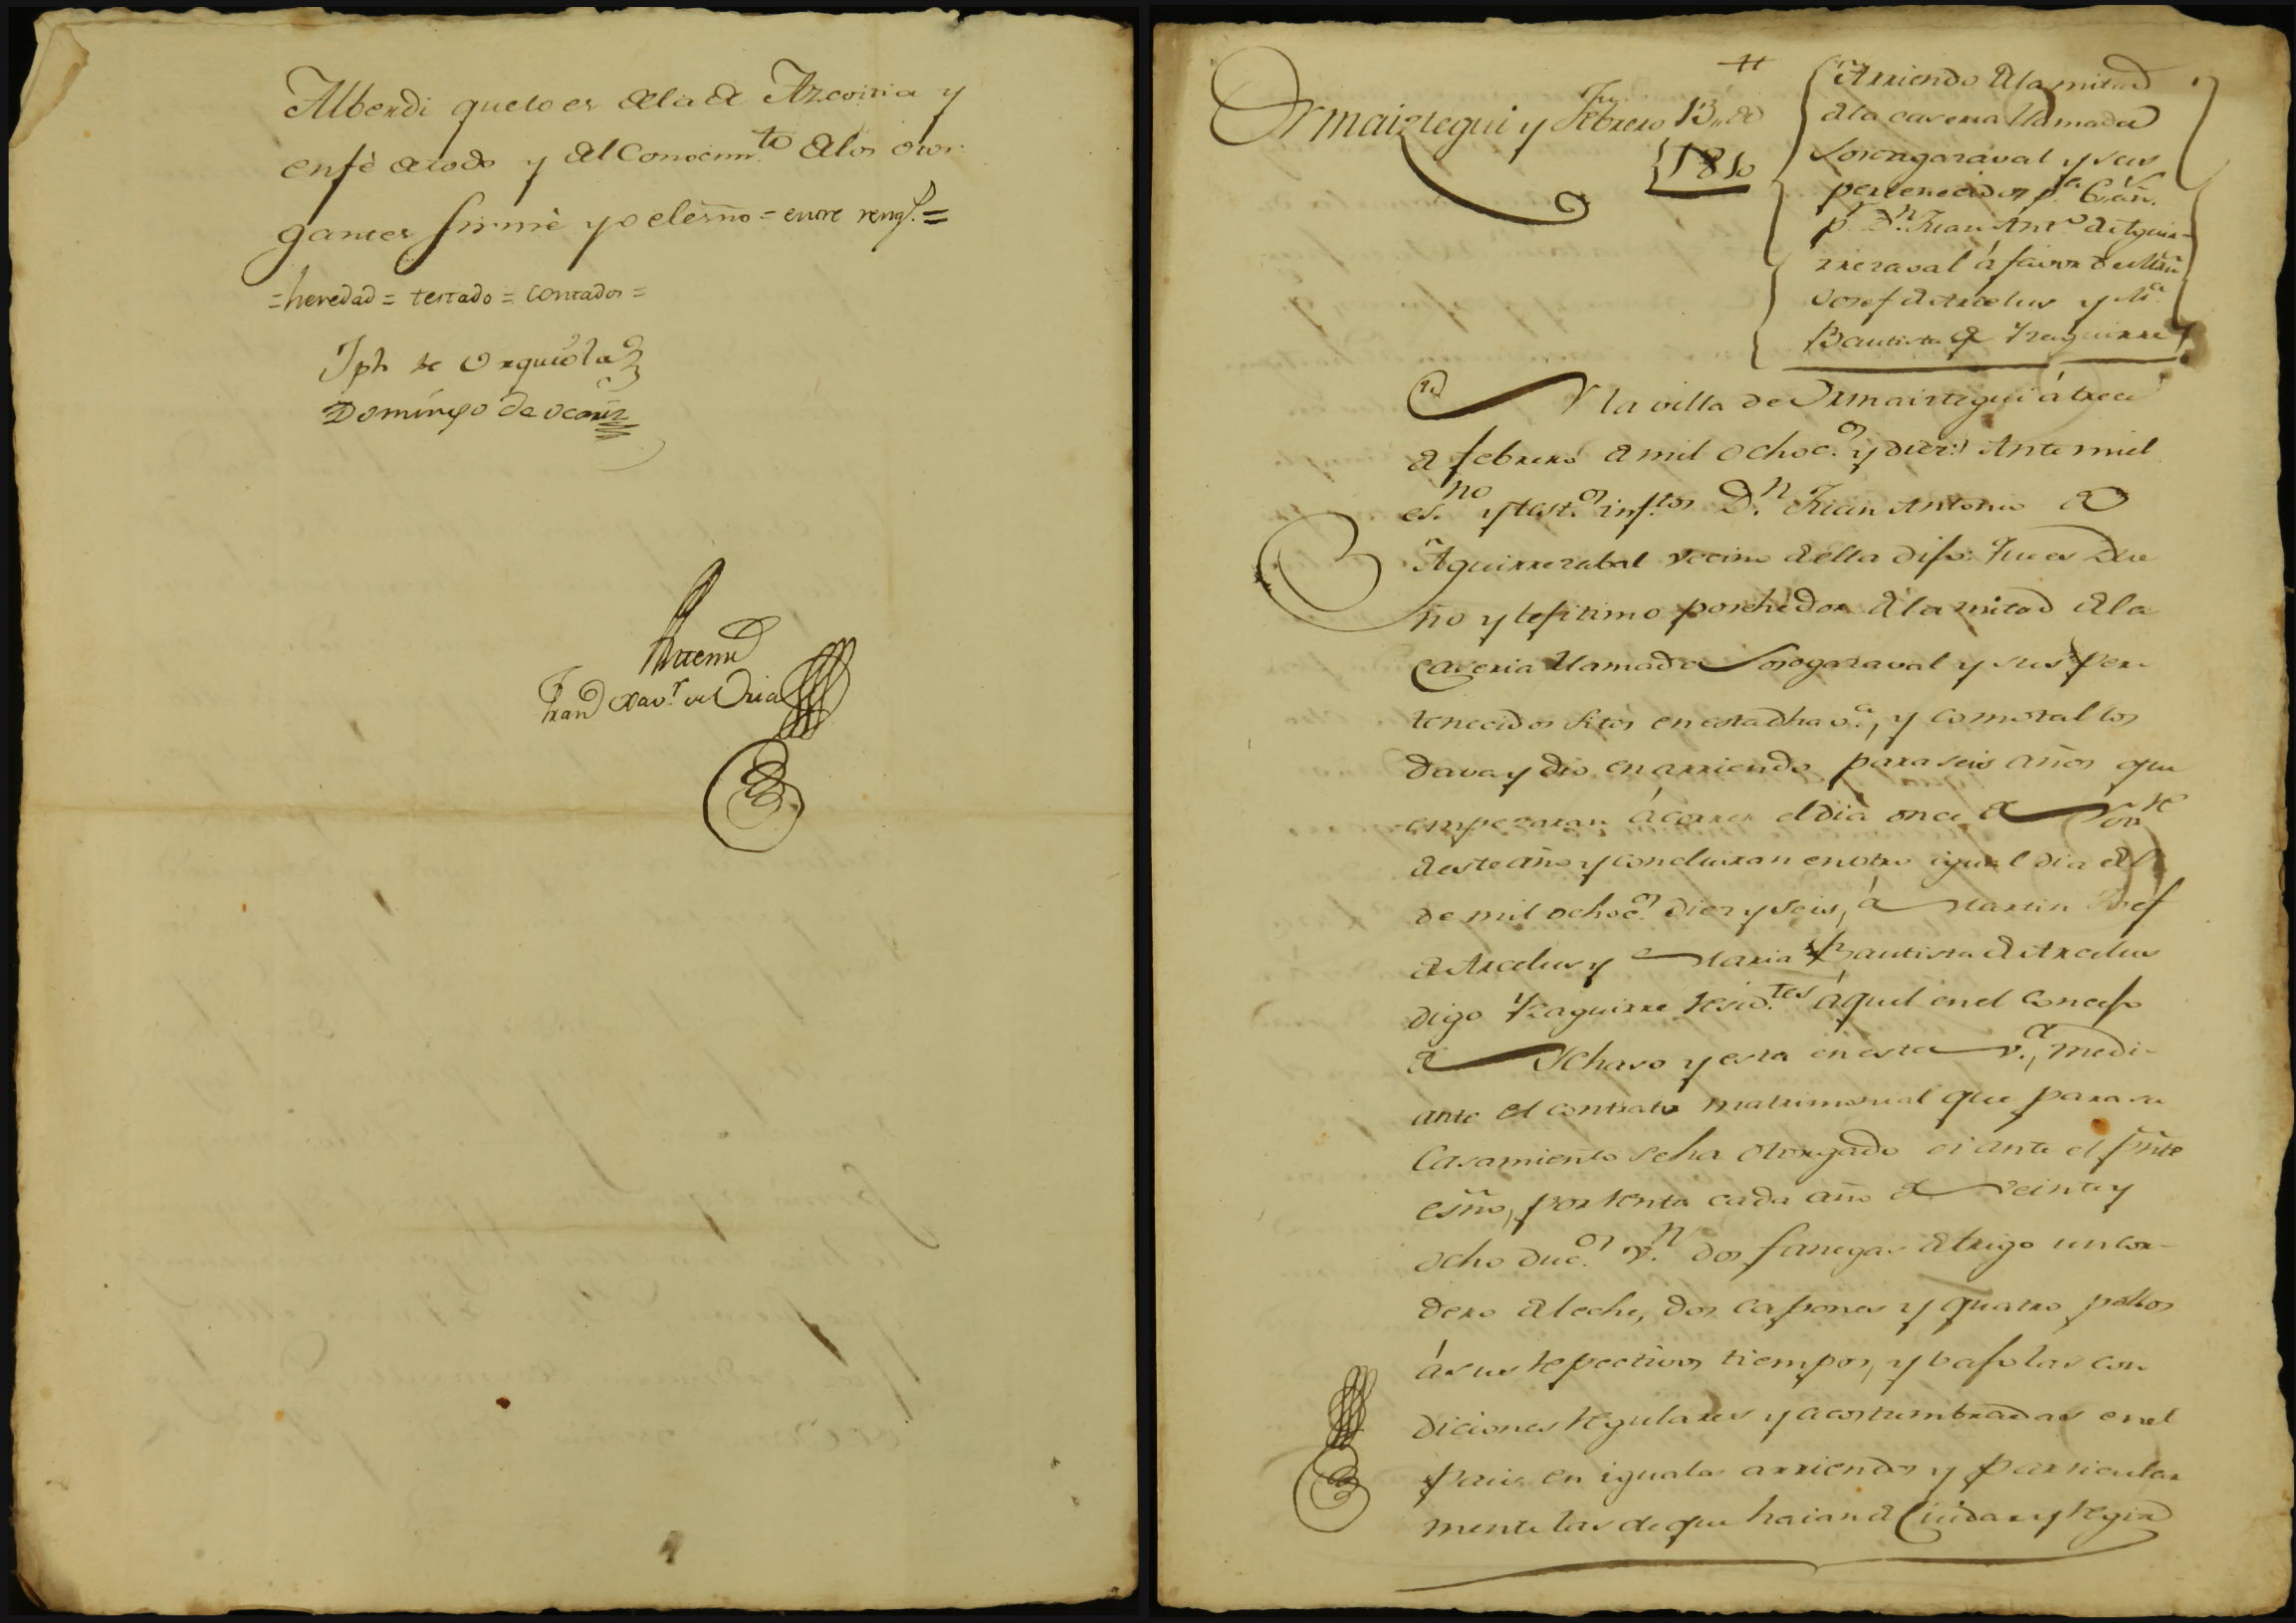 Alberdi que lo es de la de Azcoitia y
en fè de todo y del Conocim.to de los otor
gantes firmè yo el esño = entre reng.s =
= heredad = testado = contados =
Jph de Orquiola
Domingo de Ocariz
Antemi
Fran.co Xav.r de Oria
Ormaiztegui y Febrero 13,, de
1810
Arriendo de la mitad
de la caseria llamada
Sorogaraval y sus
pertenecidos p.a 6 añ.s
p.r D.n Juan Ant.o de Aguir-
rezaval á favor de Mrñ
Josef de Arcelus y M.a
Bautista de Yzaguirre
En la villa de Ormaiztegui á trece
de febrero de mil ochoc.s y diez: Ante mi el
es.no y test.os inf.tos D.n Juan Antonio de
Aguirrezabal vecino de ella dijo: Que es Due
ño y lefitimo porehedor de la mitad de la
caseria llamada Sorogaraval y sus per-
tenecidos sitos en esta dha v.a, y como tal los
dava y dió en arriendo para seis años que
empezaran á correr el dia once de Nov.re
de este año y concluiran en otro igual dia del
de mil ochoc.s diez y seis, á Martin Josef
de Arcelus y Maria Bautista de Arcelus
digo Yzaguirre resid.tes aquel en el concejo
de Ychaso y esta en esta v.a, medi-
ante el contrato matrimonial que para su
Casamiento se ha otorgado oi ante el pñte
esño, por renta cada año de veinte y
ocho duc.s v.n dos fanegas de trigo un cor-
dero de leche, dos capones y quatro pollos
á sus respectivos tiempos, y bajo las con
diciones regulares y acostumbradas en el
pais en iguales arriendos y particular
mente las de que haian de Cuidar y regir